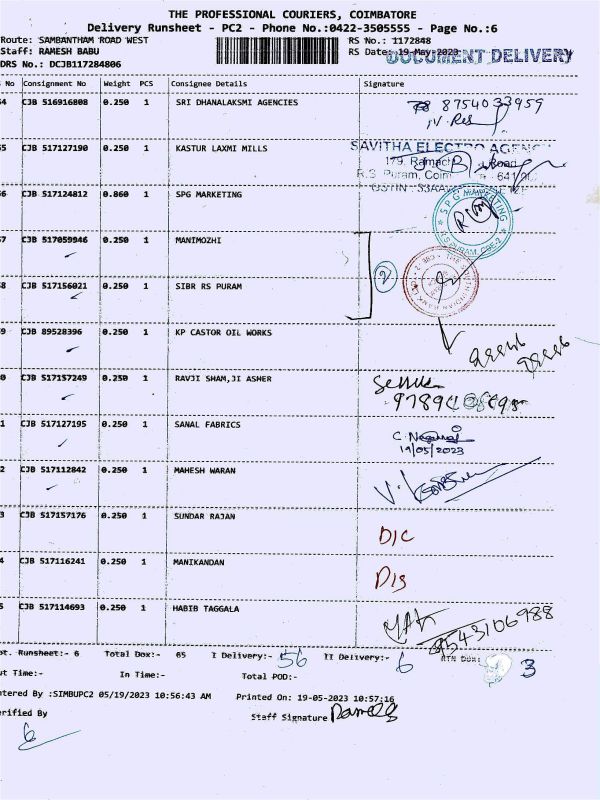 THE PROFESSIONAL COURIERS, COIMBATORE
Delivery Runsheet - PC2 - Phone No.:0422-3505555 - Page No.:6
Route: SAMBANTHAM ROAD WEST RS No.: 1172848
Staff: RAMESH BABU RS Date: 19-May-2023 DOCUMENT DELIVERY
DRS No.: DCJB117284806
No Consignment No Weight PCS Consignee Details Signature
4 CJB 516916808 0.250 1 SRI DHANALAKSMI AGENCIES 8754033959
5 CJB 517127190 0.250 1 KASTUR LAXMI MILLS SAVITHA ELECTRO AGENC
179, Ramach Road
R.S. Puram, Coim
6 CJB 517124812 0.860 1 SPG MARKETING SPG MARKETING R.S.PURAM, CBE-2
7 CJB 517059946 0.250 1 MANIMOZHI
2
8 CJB 517156021 0.250 1 SIBR RS PURAM
9 CJB 89528396 0.250 1 KP CASTOR OIL WORKS
0 CJB 517157249 0.250 1 RAVJI SHAM,JI ASHER
1 CJB 517127195 0.250 1 SANAL FABRICS C. Nagaraj
19/05/2023
2 CJB 517112842 0.250 1 MAHESH WARAN
3 CJB 517157176 0.250 1 SUNDAR RAJAN D/C
4 CJB 517116241 0.250 1 MANIKANDAN
5 CJB 517114693 0.250 1 HABIB TAGGALA
ot. Runsheet:- 6 Total Dox:- 65 I Delivery:- 56 II Delivery:- 6 RTN Dox: 3
ut Time:- In Time:- Total POD:-
ntered By :SIMBUPC2 05/19/2023 10:56:43 AM Printed On: 19-05-2023 10:57:16
erified By Staff Signature Ramesh
6